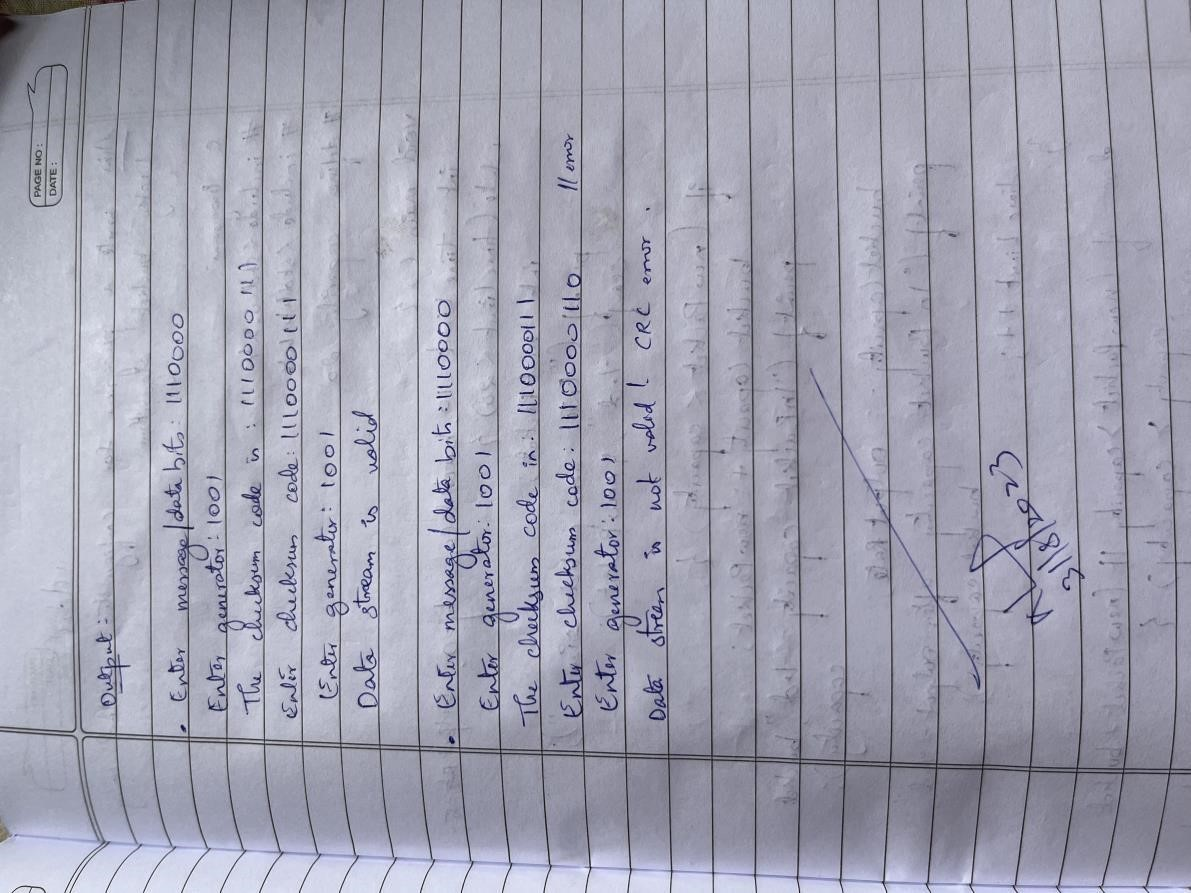 PAGE NO :
DATE :
Output :-
• Enter message/data bits : 1110000
Enter generator : 1001
The checksum code is : 1110000111
Enter checksum code : 1110000111
Enter generator : 1001
Data stream is valid
• Enter message/data bits : 1110000
Enter generator : 1001
The checksum code is : 1110000111
Enter checksum code : 1110000110 // error
Enter generator : 1001
Data streem is not valid ! CRC error .